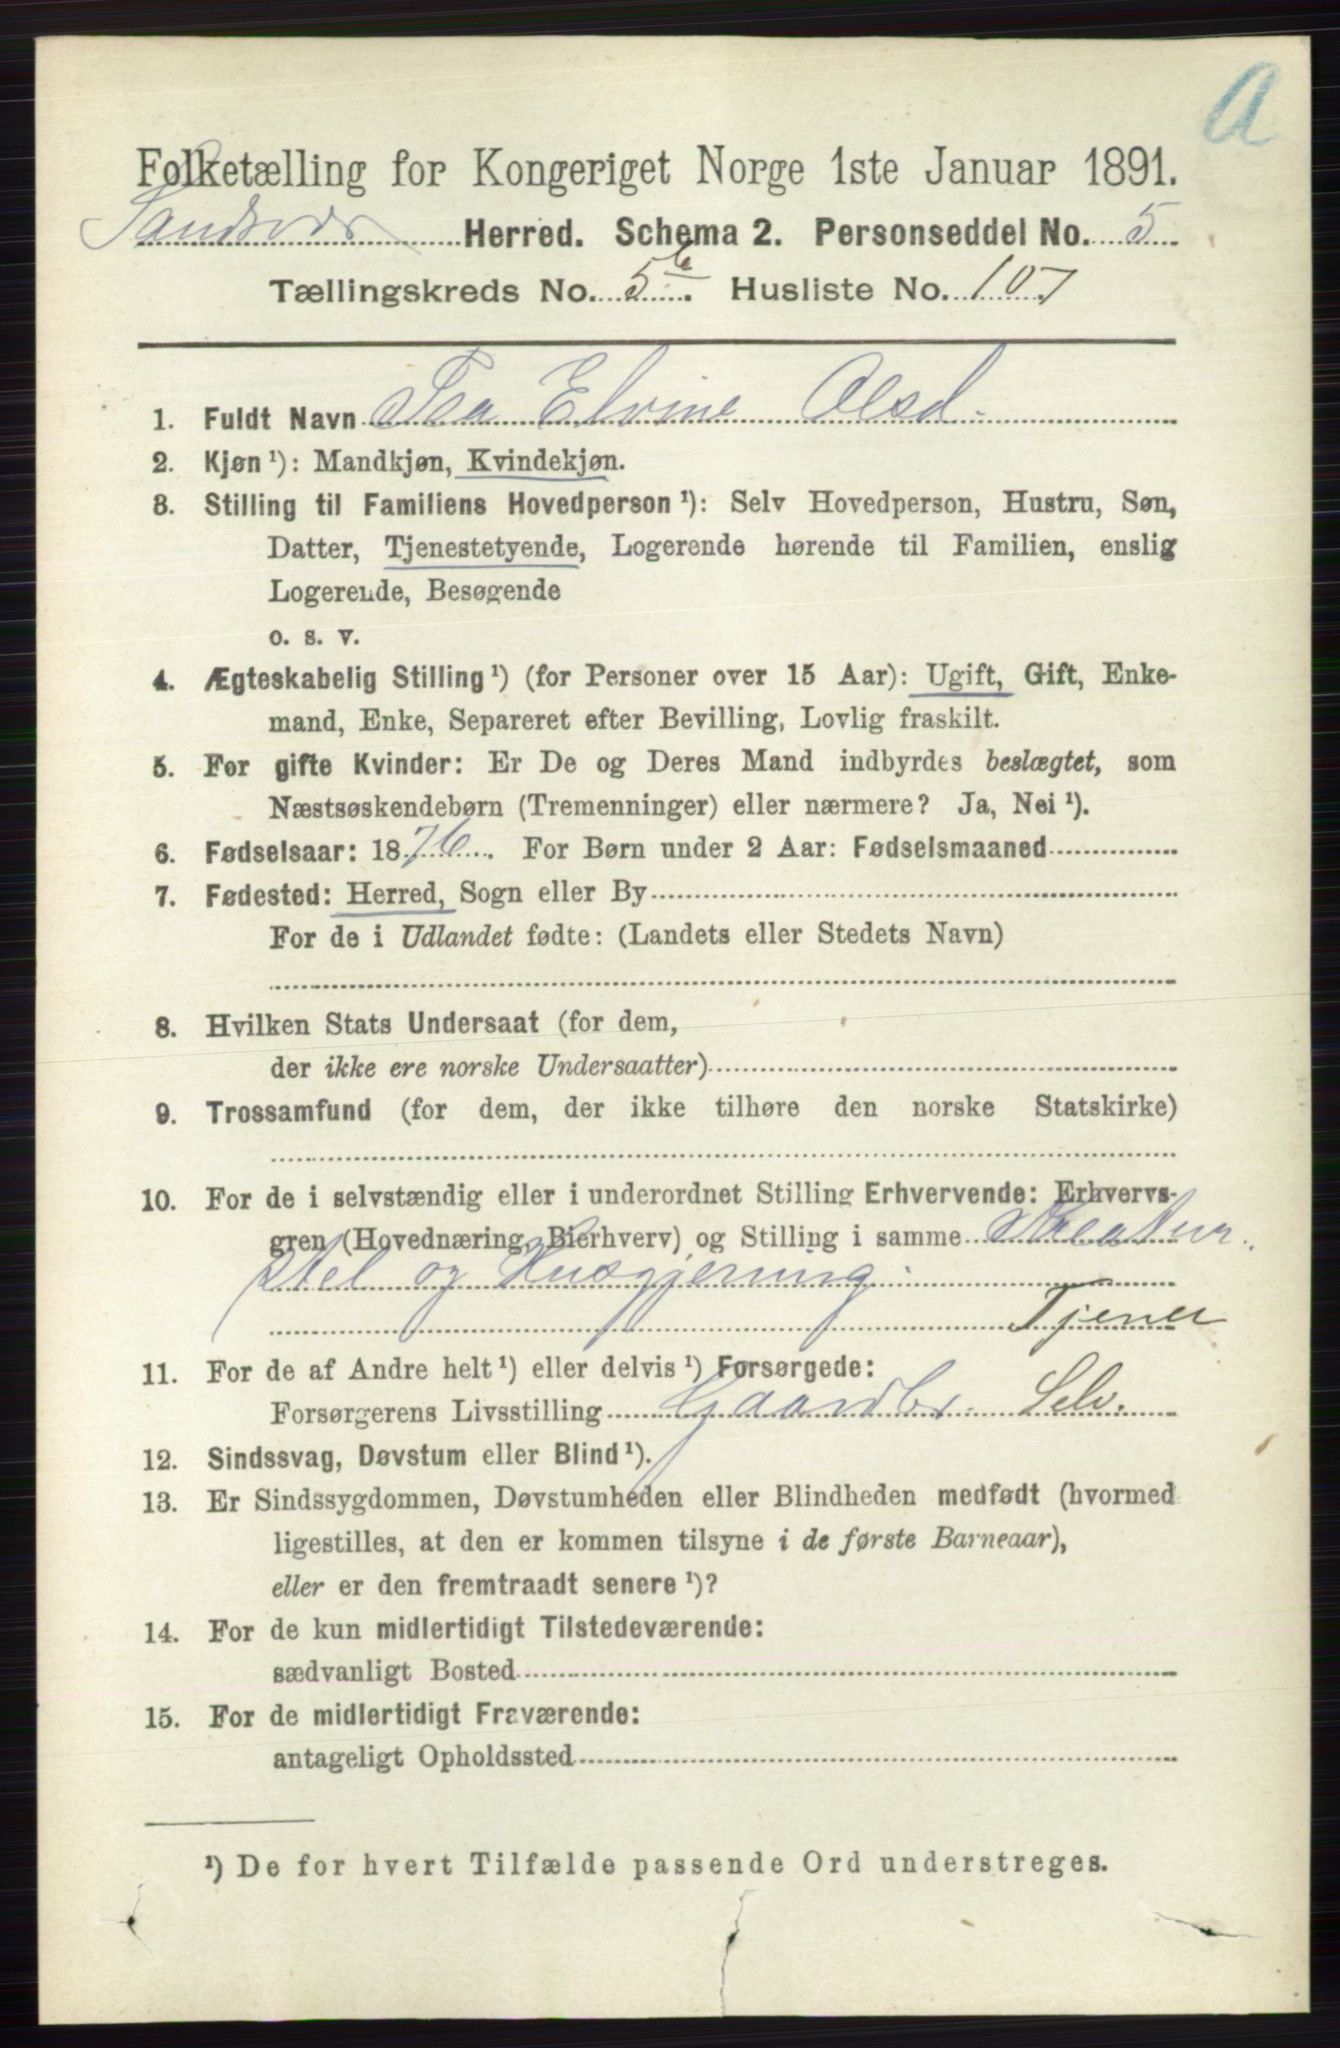 A
Folketælling for Kongeriget Norge 1ste Januar 1891.
Sandsvær Herred. Schema 2. Personseddel No. 5
Tællingskreds No. 5b. Husliste No. 107
1. Fuldt Navn Elvine Olsd.
2. Kjøn ¹): Mandkjøn, Kvindekjøn.
3. Stilling til Familiens Hovedperson ¹): Selv Hovedperson, Hustru, Søn,
Datter, Tjenestetyende, Logerende hørende til Familien, enslig
Logerende, Besøgende
o. s. v.
4. Ægteskabelig Stilling ¹) (for Personer over 15 Aar): Ugift, Gift, Enke-
mand, Enke, Separeret efter Bevilling, Lovlig fraskilt.
5. For gifte Kvinder: Er De og Deres Mand indbyrdes beslægtet, som
Næstsøskendebørn (Tremenninger) eller nærmere? Ja, Nei ¹).
6. Fødselsaar: 1876. For Børn under 2 Aar: Fødselsmaaned
7. Fødested: Herred, Sogn eller By
For de i Udlandet fødte: (Landets eller Stedets Navn)
8. Hvilken Stats Undersaat (for dem,
der ikke ere norske Undersaatter)
9. Trossamfund (for dem, der ikke tilhøre den norske Statskirke)
10. For de i selvstændig eller i underordnet Stilling Erhvervende: Erhvervs-
gren (Hovednæring, Bierhverv) og Stilling i samme Kreatur
stel og Husgjerning
Tjener
11. For de af Andre helt ¹) eller delvis ¹) Forsørgede:
Forsørgerens Livsstilling Gaardbr. Selv.
12. Sindssvag, Døvstum eller Blind ¹).
13. Er Sindssygdommen, Døvstumheden eller Blindheden medfødt (hvormed
ligestilles, at den er kommen tilsyne i de første Barneaar),
eller er den fremtraadt senere ¹)?
14. For de kun midlertidigt Tilstedeværende:
sædvanligt Bosted
15. For de midlertidigt Fraværende:
antageligt Opholdssted
¹) De for hvert Tilfælde passende Ord understreges.